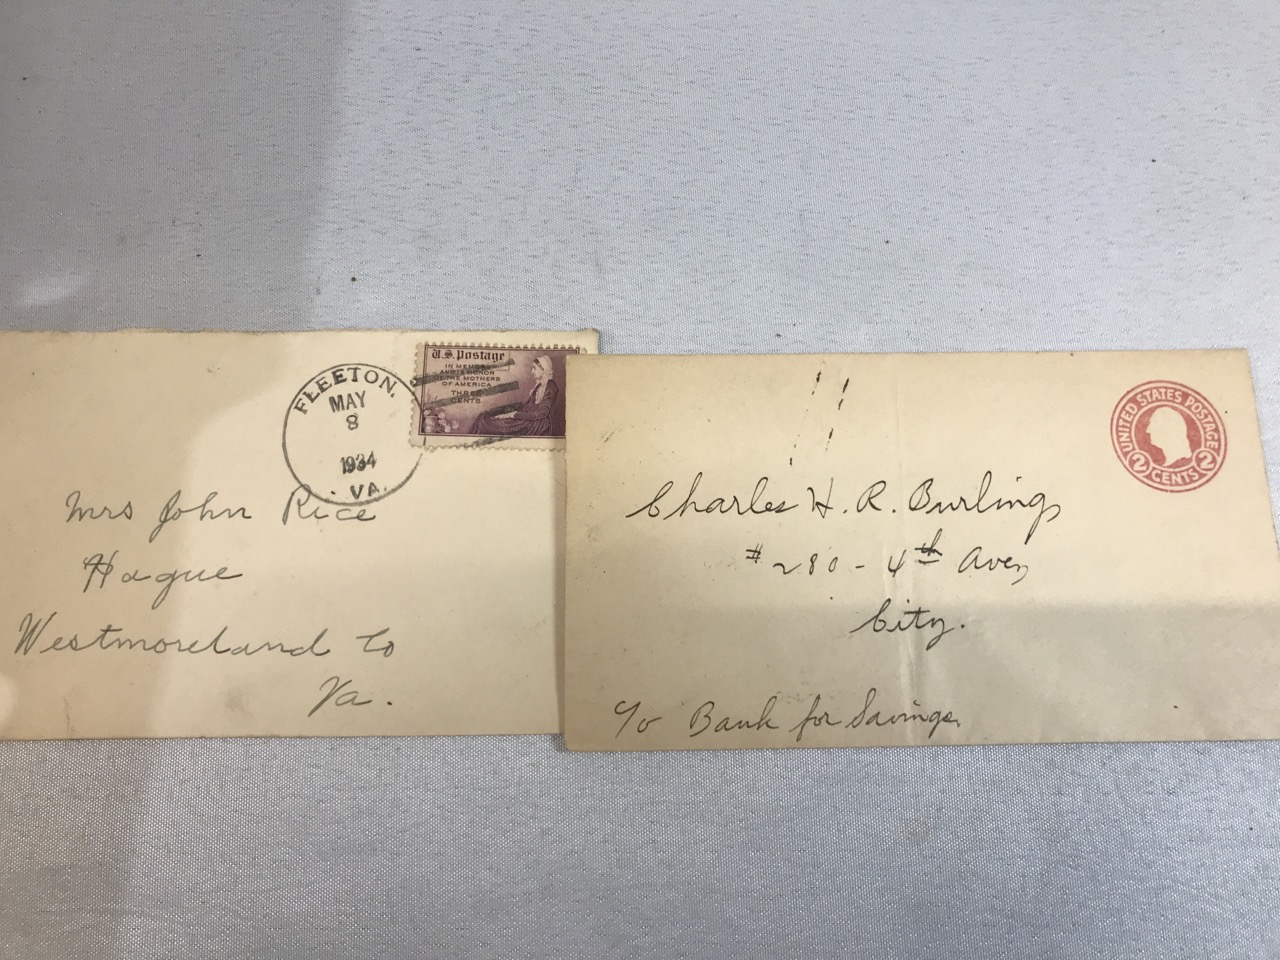 FLEETON.
MAY
8
1934
VA.
U.S. Postage
IN MEMORY
AND IN HONOR
OF THE MOTHERS
OF AMERICA
THREE
CENTS
Mrs John Rice
Hague
Westmoreland Co
Va.
UNITED STATES POSTAGE
2 CENTS 2
Charles H. R. Burling
# 280 - 4th Ave,
City.
c/o Bank for Savings,